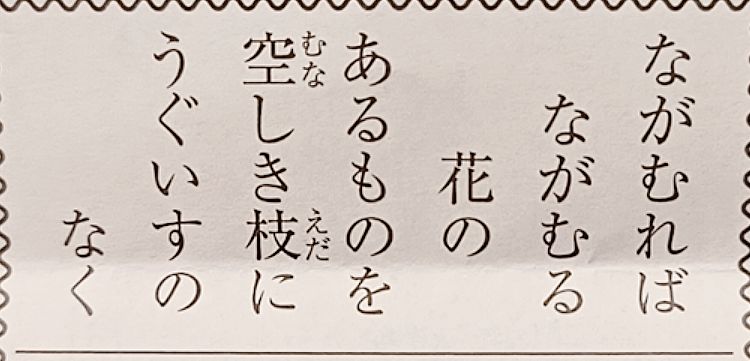 ながむれば
ながむる
花の
あるものを
空しき枝に
むな
えだ
うぐいすの
なく